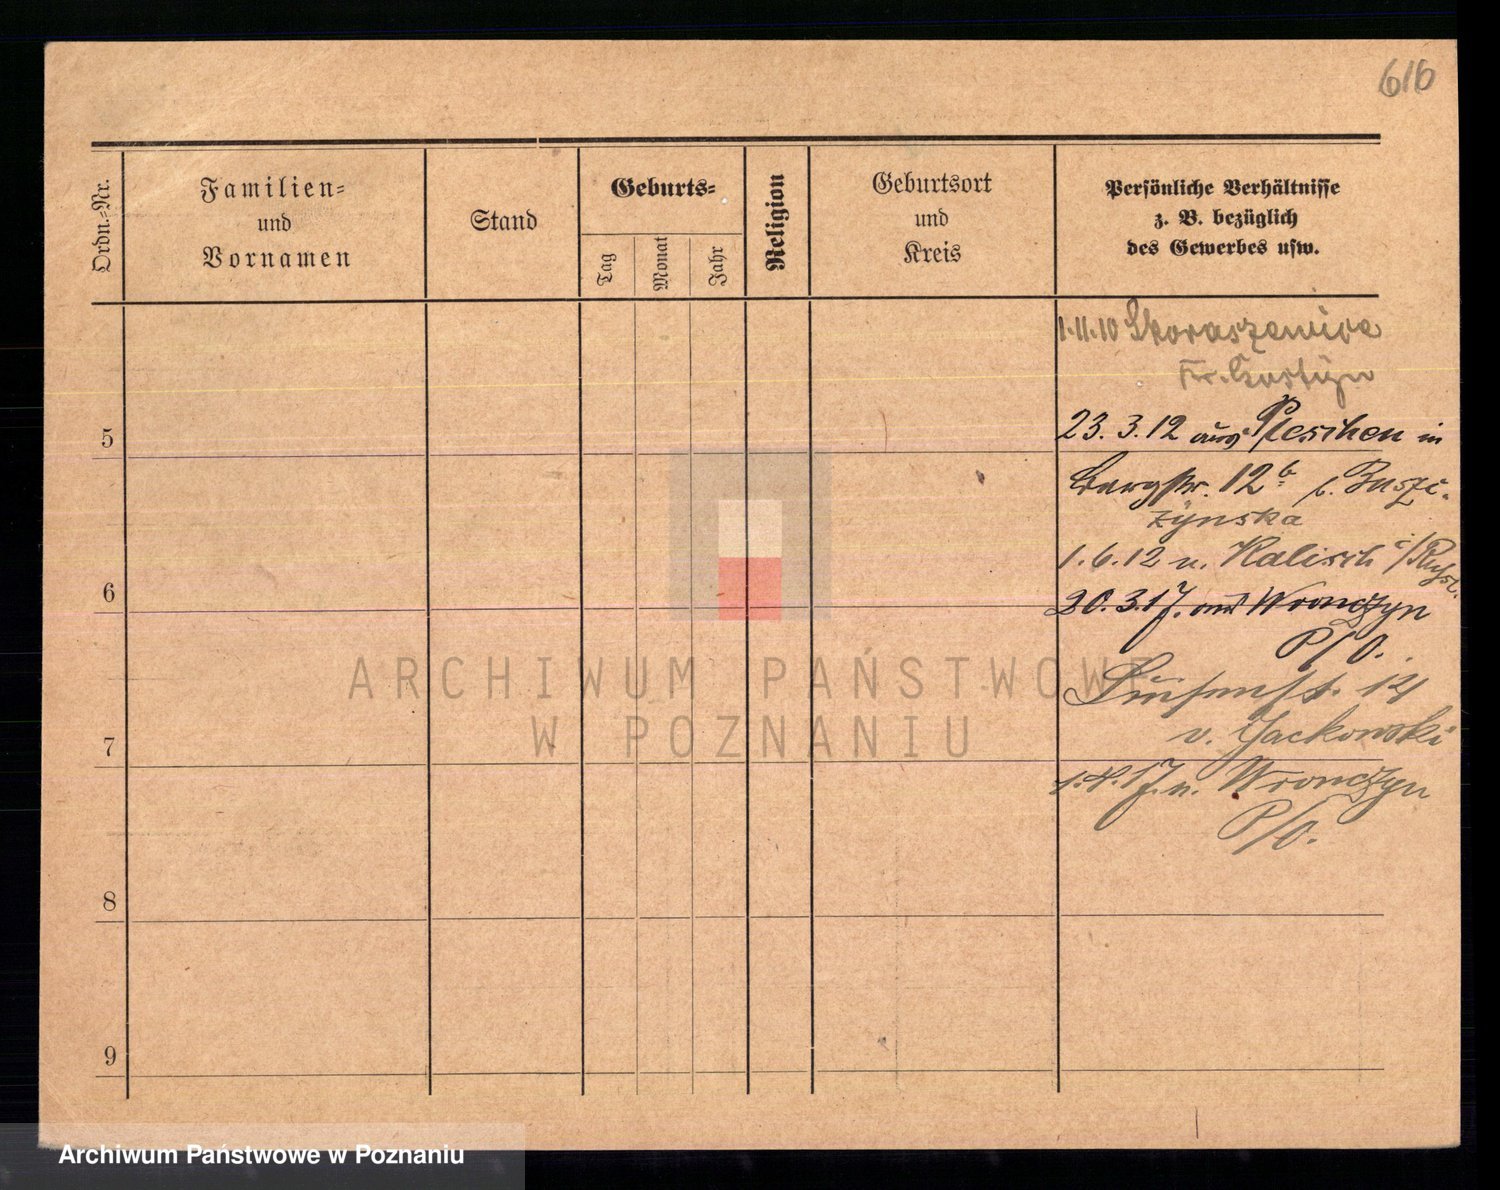 616
Ordn.-Nr.
Familien-
und
Vornamen
Stand
Geburts-
Tag
Monat
Jahr
Religion
Geburtsort
und
Kreis
Persönliche Verhältnisse
z. B. bezüglich
des Gewerbes usw.
1.11.10 Skoraszewice
Kr. Gostyn
5
23.3.12 aus Pleschen in
Bergstr. 12 b
zynska
1.6.12 n. Kalisch
6
20.3.17. aus Wronczyn
P/O.
v. Jackowski
7
1.4.17. n. Wronczyn
P/O.
8
9
ARCHIWUM PAŃSTWOWE
W POZNANIU
Archiwum Państwowe w Poznaniu